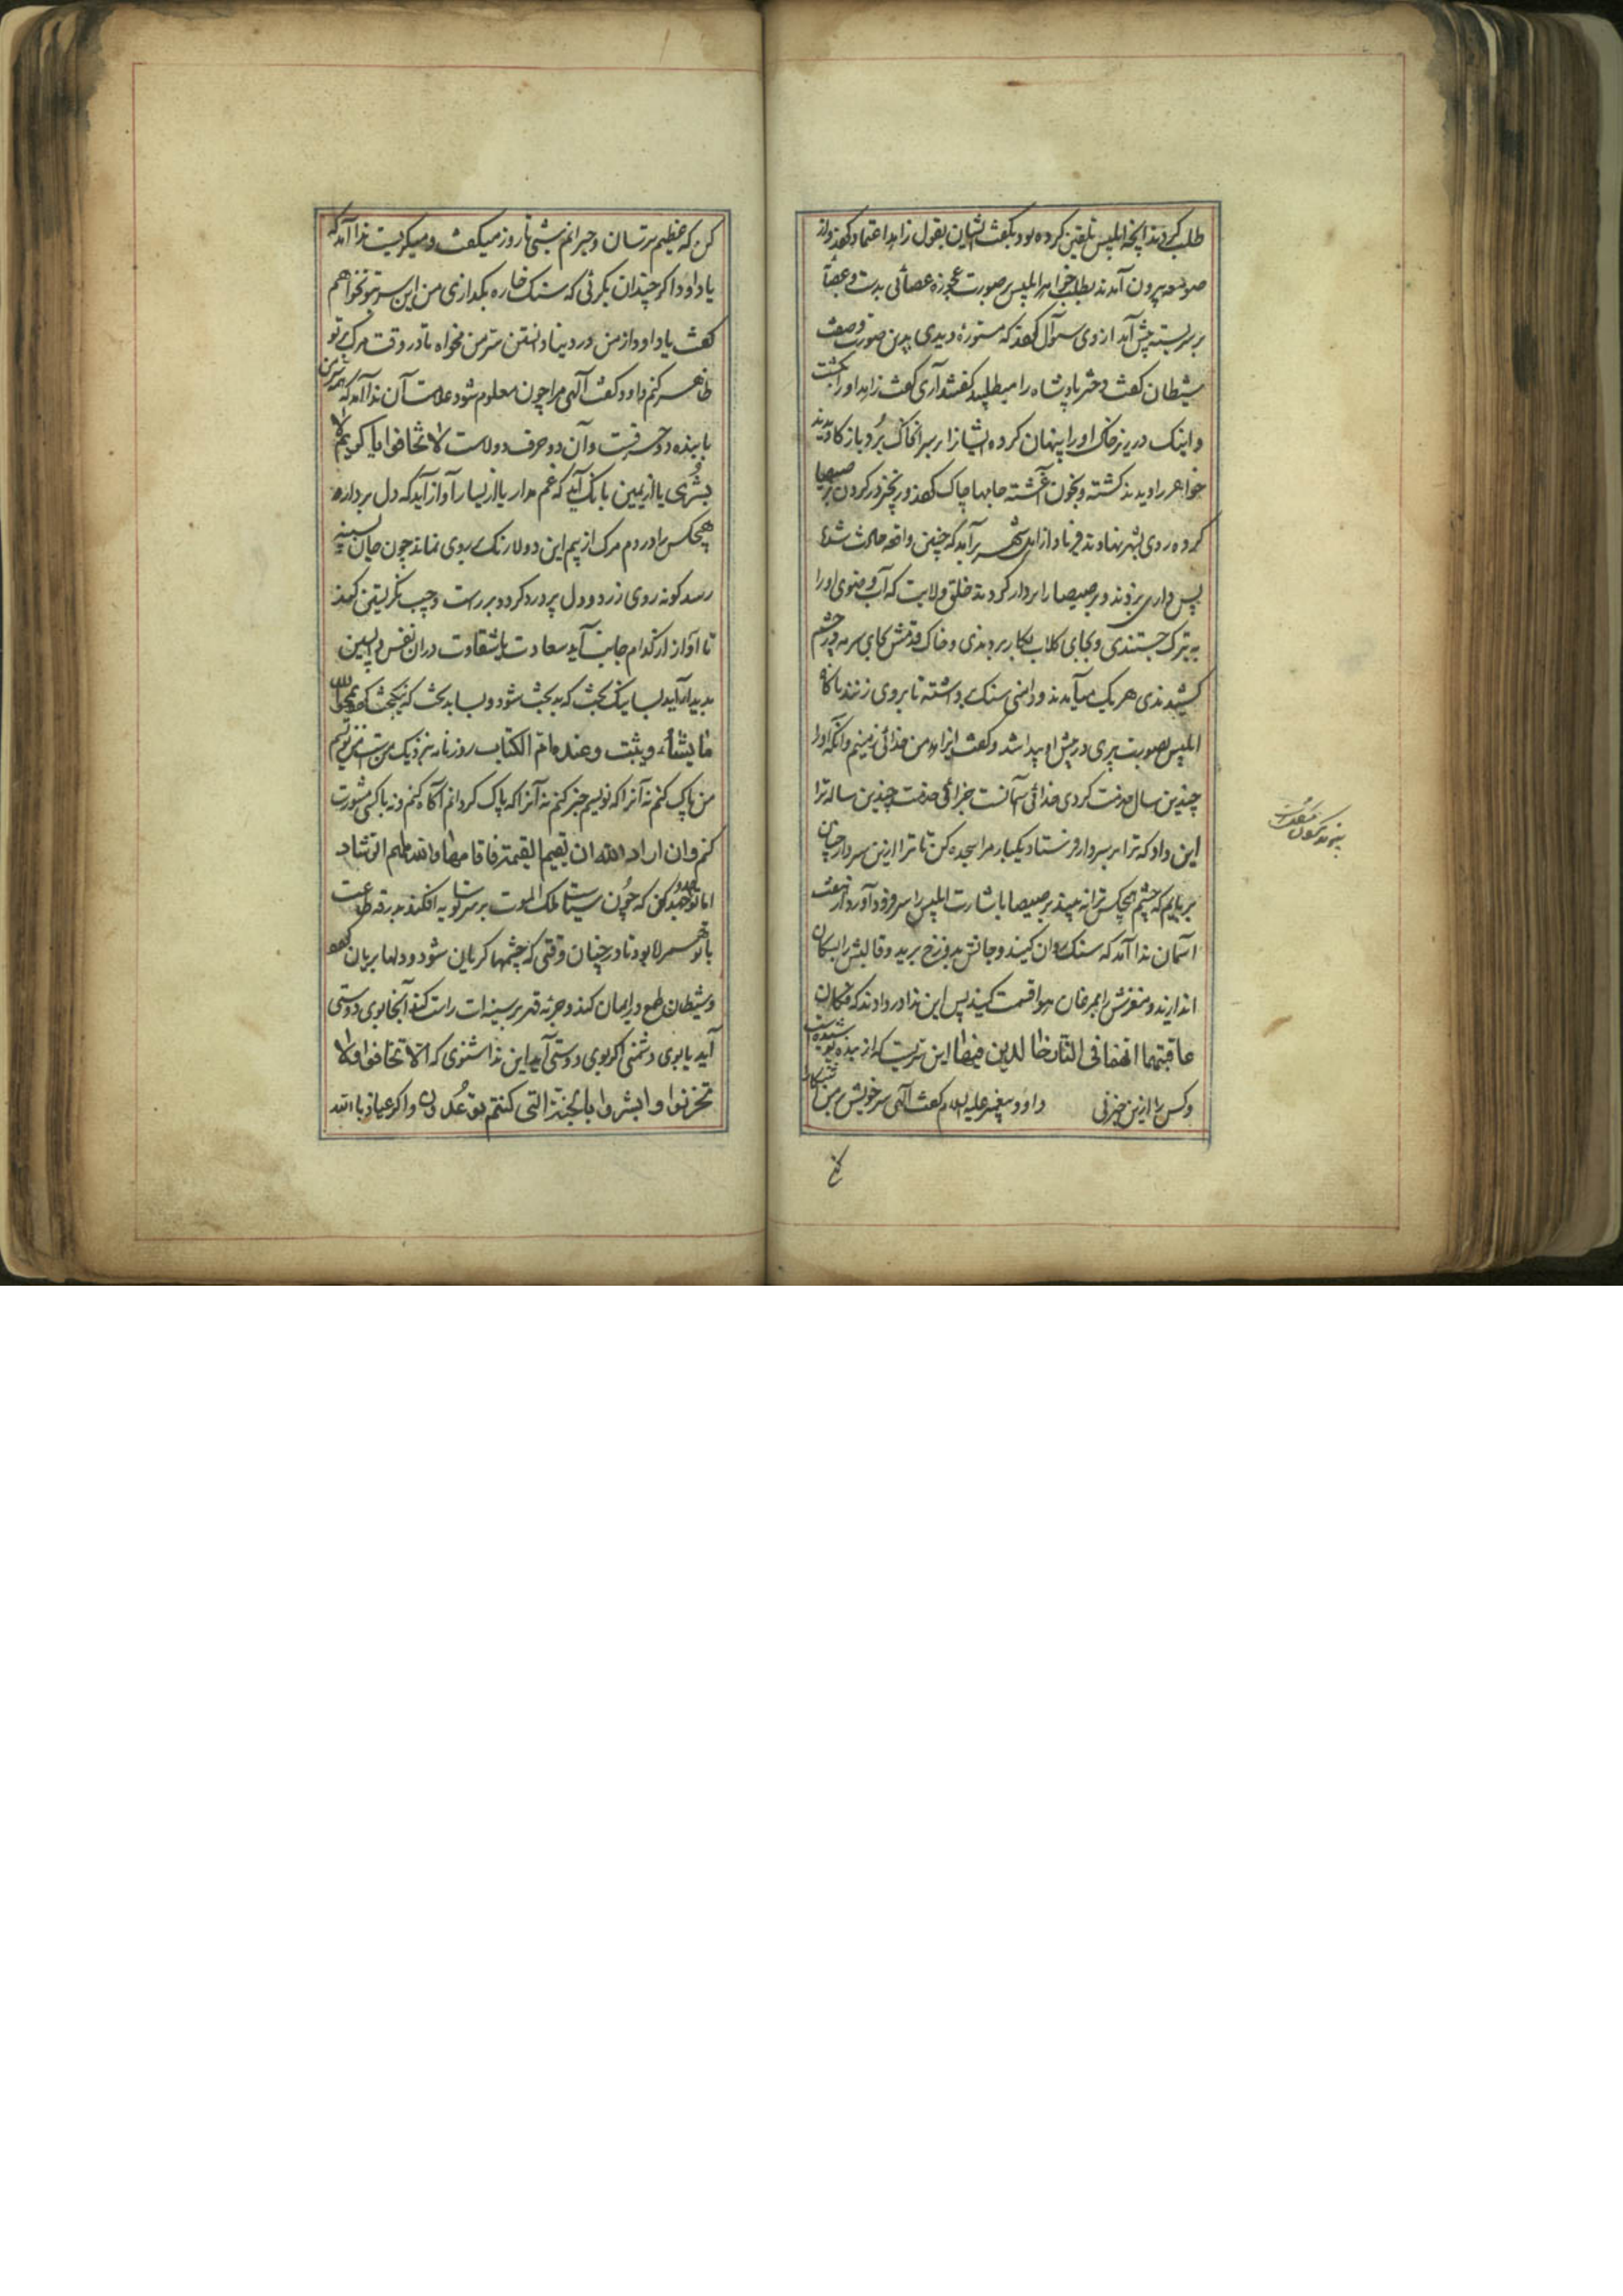 طلب کردند آنچه ابلیس تلقین کرده بود بکفت ایشان بقول زاهد اعتماد کردند و از
صومعه بیرون آمدند بطلب خواهر ابلیس بر صورت عجوزه عصائی بدست و عصابه
بر سر بسته پیش آمد از وی سوآل کردند که مستورهٔ دیدی بدین صورت و صفت
شیطان کفت دختر پادشاه را میطلبید کفتند آری کفت زاهد او را بکشت
و اینک در زیر خاک او را پنهان کرده ایشانرا بر سر آن خاک برد باز کاویدند
خواهر را دیدند کشته و بخون آغشته جامها چاک کردند و زنجیر در کردن برصیصا
کرده روی بشهر نهادند فریاد از اهل شهر برآمد که چنین واقعه حادث شده
پس داری بزدند و برصیصا را بر دار کردند خلق ولایت که آب وضوی او را
به تبرک جستندی و بجای کلاب بکار بردندی و خاک قدمش بجای سرمه در چشم
کشیدندی هر یک میآمدند و دامنی سنک برداشته تا بر وی زنند ناکاه
ابلیس بصورت پیری در پیش او پیدا شد و کفت ای زاهد من خدائی زمینم و آنکه او را
چندین سال خدمت کردی خدائی آسمانست جزائی خدمت چندین ساله ترا
این داد که ترا بر سر دار فرستاد یکبار مرا سجده کن تا ترا ازین سر دار چنان
بربایم که چشم هیچکس ترا نه بیند برصیصا باشارت ابلیس را سر فرود آورد از هفت
آسمان ندا آمد که سنک روان کنید و جانش بدوزخ برید و قالبش را بسکان
اندازید و مغزش را بمرغان هوا قسمت کنید پس این ندا در دادند که فکان
عاقبتهما انهما فی النار خالدین فیها این سریست که از بنده پوشیده است
و کس را ازین خبر نی داود پیغمبر علیه السلام کفت الهی سر خویش بر من آشکارا
کن که عظیم ترسان و حیرانم شبی تا روز میکفت و میکریست ندا آمد که
یا داود اکر چندان بکریی که سنک خاره بکدازی من این سر بتو نخواهم
کفت یا داود از من در دنیا دانستن سر من مخواه تا در وقت مرک بر تو
ظاهر کنم داود کفت الهی مرا چون معلوم شود علامت آن ندا آمد که سر من
با بنده دو حرفست و آن دو حرف دو لاست لا تخافوا یا کویم لا
بشری یا از یمین بانک آید که غم مدار یا از یسار آواز آید که دل بردار
هیچکس را در دم مرک از بیم این دو لا رنک بروی نماند چون جان بسینه
رسد کونه روی زرد و دل پر درد کردد بر راست و چپ نکریستن کیرد
تا آواز از کدام جانب آید سعادت یا شقاوت در آن نفس واپسین
پدیدار آید بسا نیک بخت که بدبخت شود و بسا بدبخت که نیکبخت کردد یمحوا الله
ما یشاء و یثبت و عنده ام الکتاب روزنامه نزدیک من است من نویسم
من پاک کنم نه آنرا که نویسم خبر کنم نه آنرا که پاک کردانم آکاه کنم و نه با کسی مشورت
کنم و ان اراد الله ان
اما تو جهد کن که چون سیاست ملک الموت بر سر تو سایه افکند بدرقه طاعت
با تو همراه بود تا در چنان وقتی که چشمها کریان شود و دلها بریان کردد
و شیطان طمع در ایمان کند و حربه قهر بر سینه ات راست کند آنجا بوی دوستی
آید یا بوی دشمنی اکر بوی دوستی آید این ندا شنوی که الا تخافوا و لا
تحزنوا و ابشروا بالجنة التی کنتم توعدون و اکر عیاذ بالله